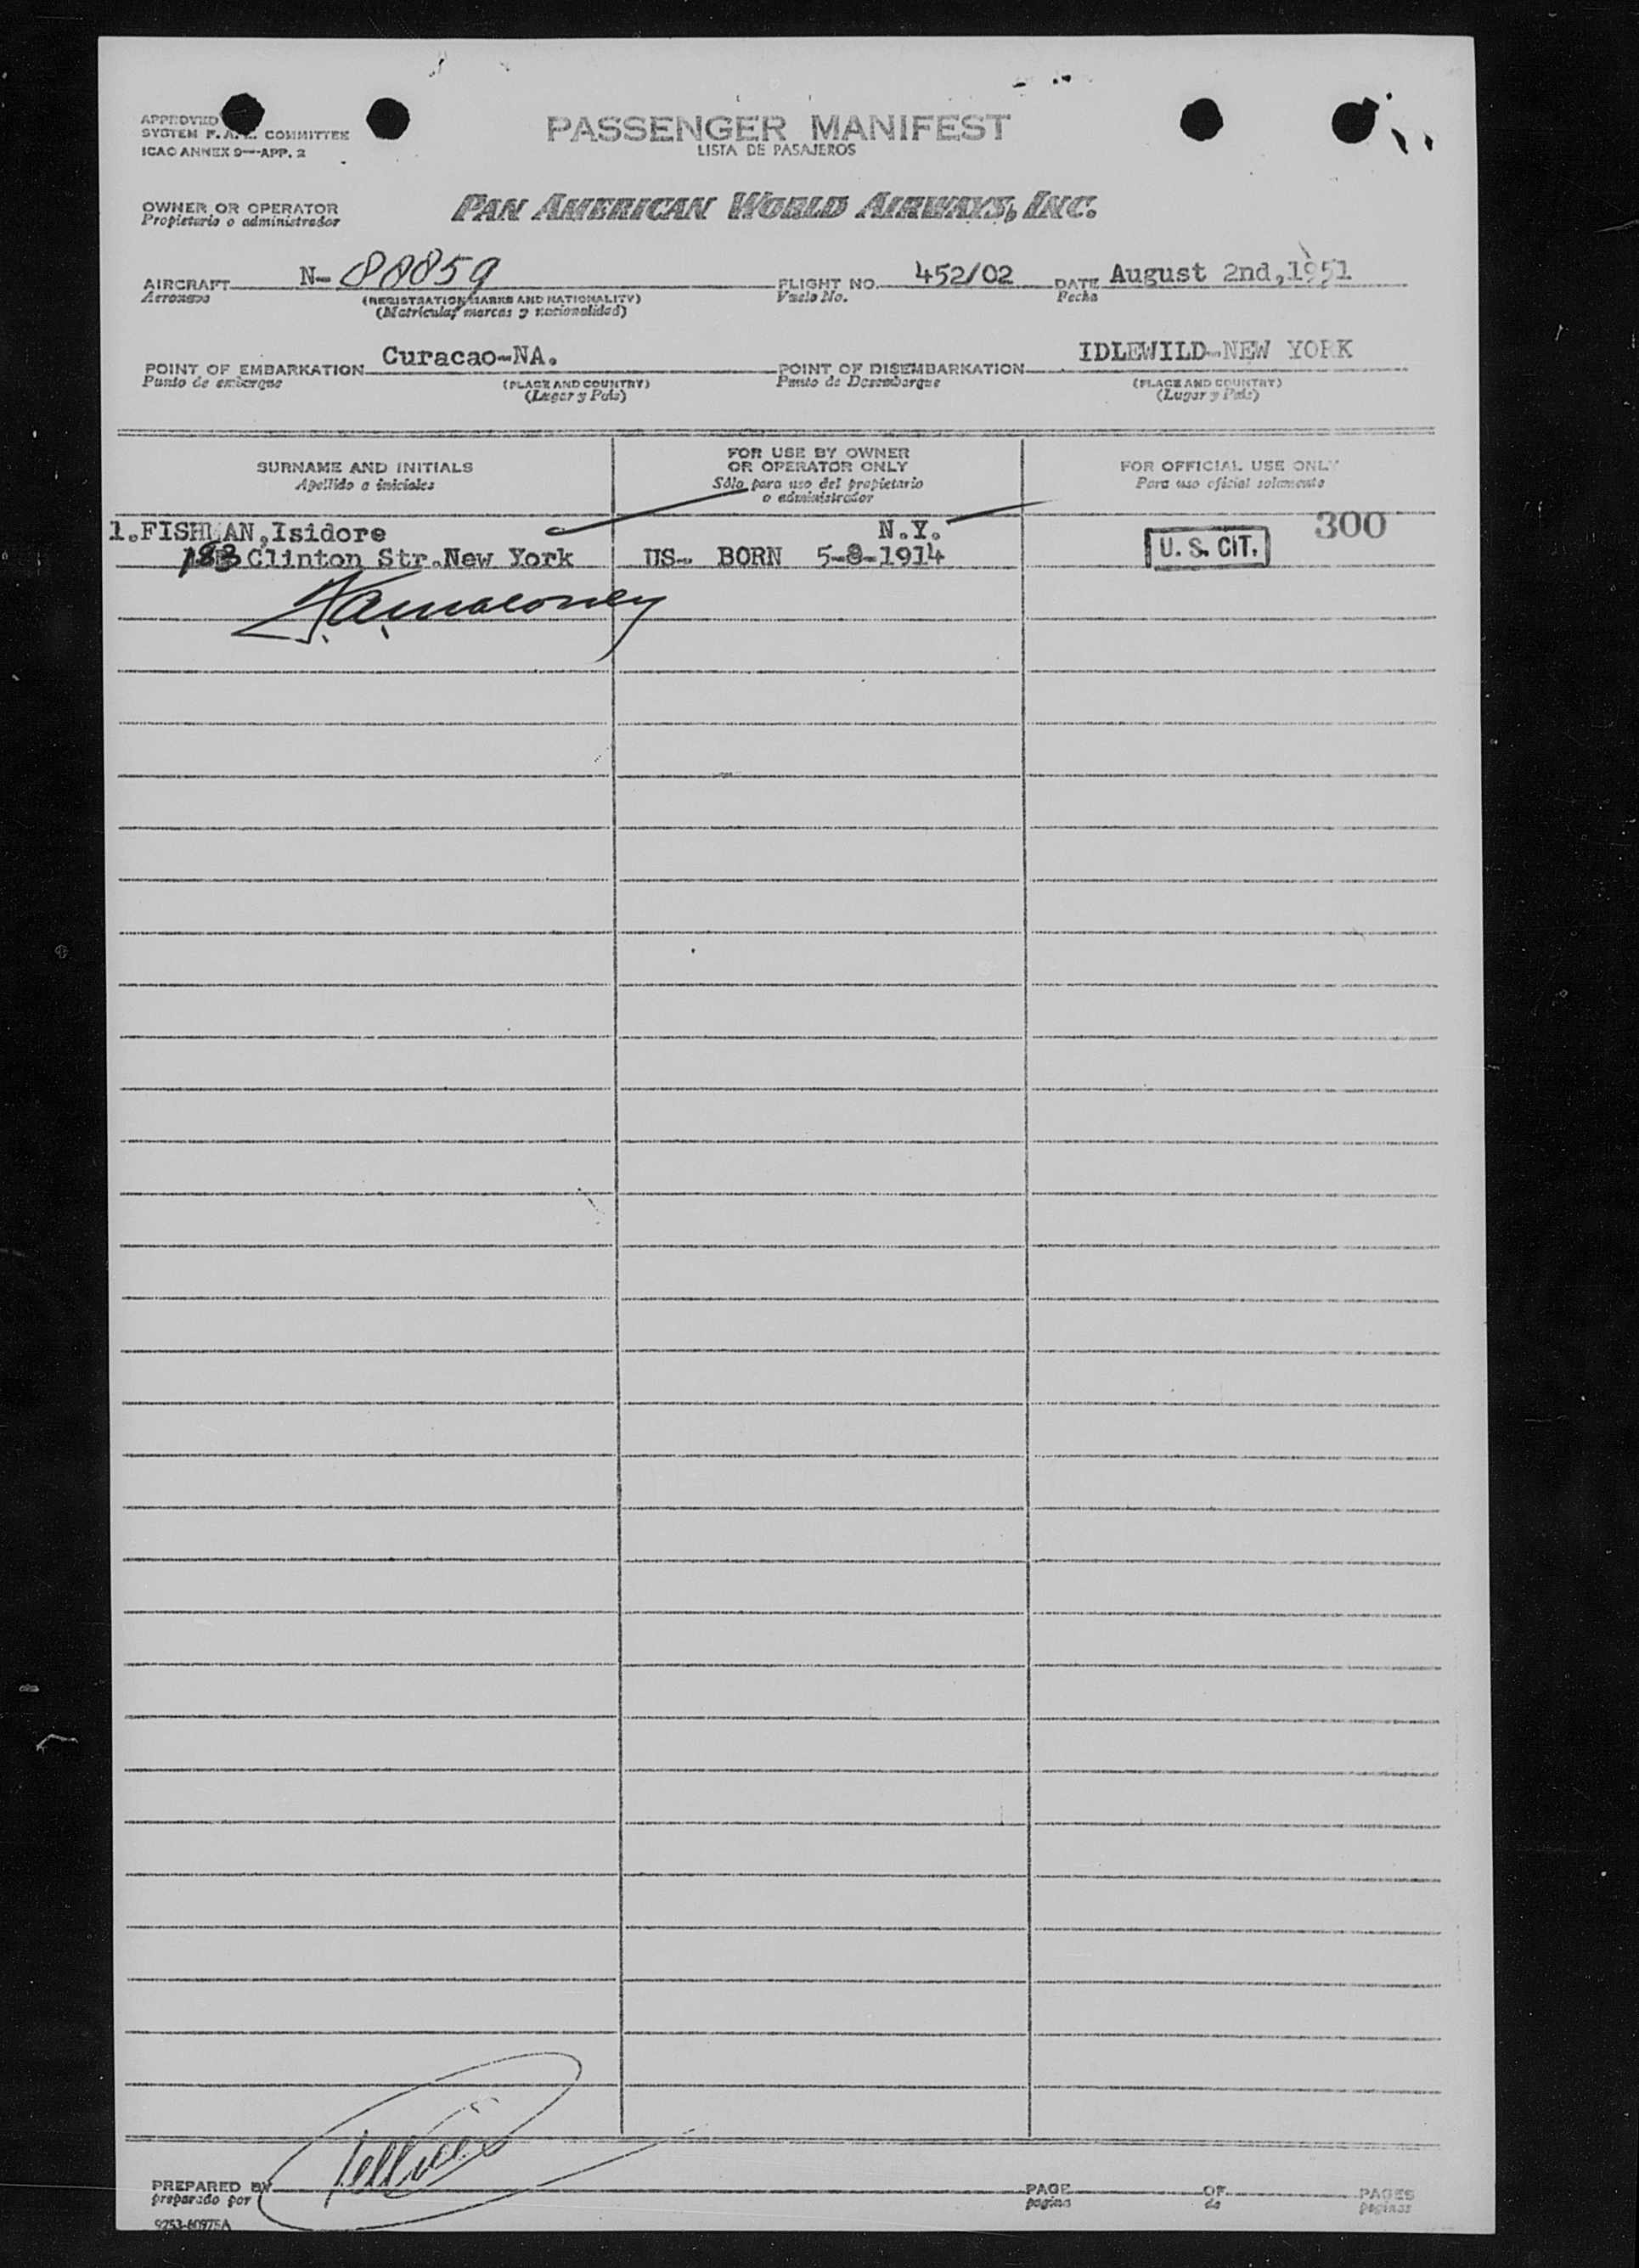 APPROVED
SYSTEM F. A. L. COMMITTEE
ICAO ANNEX 9—APP. 2
PASSENGER MANIFEST
LISTA DE PASAJEROS
OWNER OR OPERATOR
Propietario o administrador
PAN AMERICAN WORLD AIRWAYS, INC.
AIRCRAFT N- 88859 FLIGHT NO. 452/02 DATE August 2nd, 1951
Aeronave (REGISTRATION MARKS AND NATIONALITY) Vuelo No. Fecha
(Matricula, marcas y nacionalidad)
POINT OF EMBARKATION Curacao-NA. POINT OF DISEMBARKATION IDLEWILD-NEW YORK
Punto de embarque (PLACE AND COUNTRY) Punto de Desembarque (PLACE AND COUNTRY)
(Lugar y País) (Lugar y País)
SURNAME AND INITIALS
Apellido e iniciales
FOR USE BY OWNER
OR OPERATOR ONLY
Sólo para uso del propietario
o administrador
FOR OFFICIAL USE ONLY
Para uso oficial solamente
1.FISHMAN,Isidore N.Y. 300
183 Clinton Str.New York US- BORN 5-8-1914 U. S. CIT.
PREPARED BY PAGE OF PAGES
preparado por pagina de paginas
9253-60975A